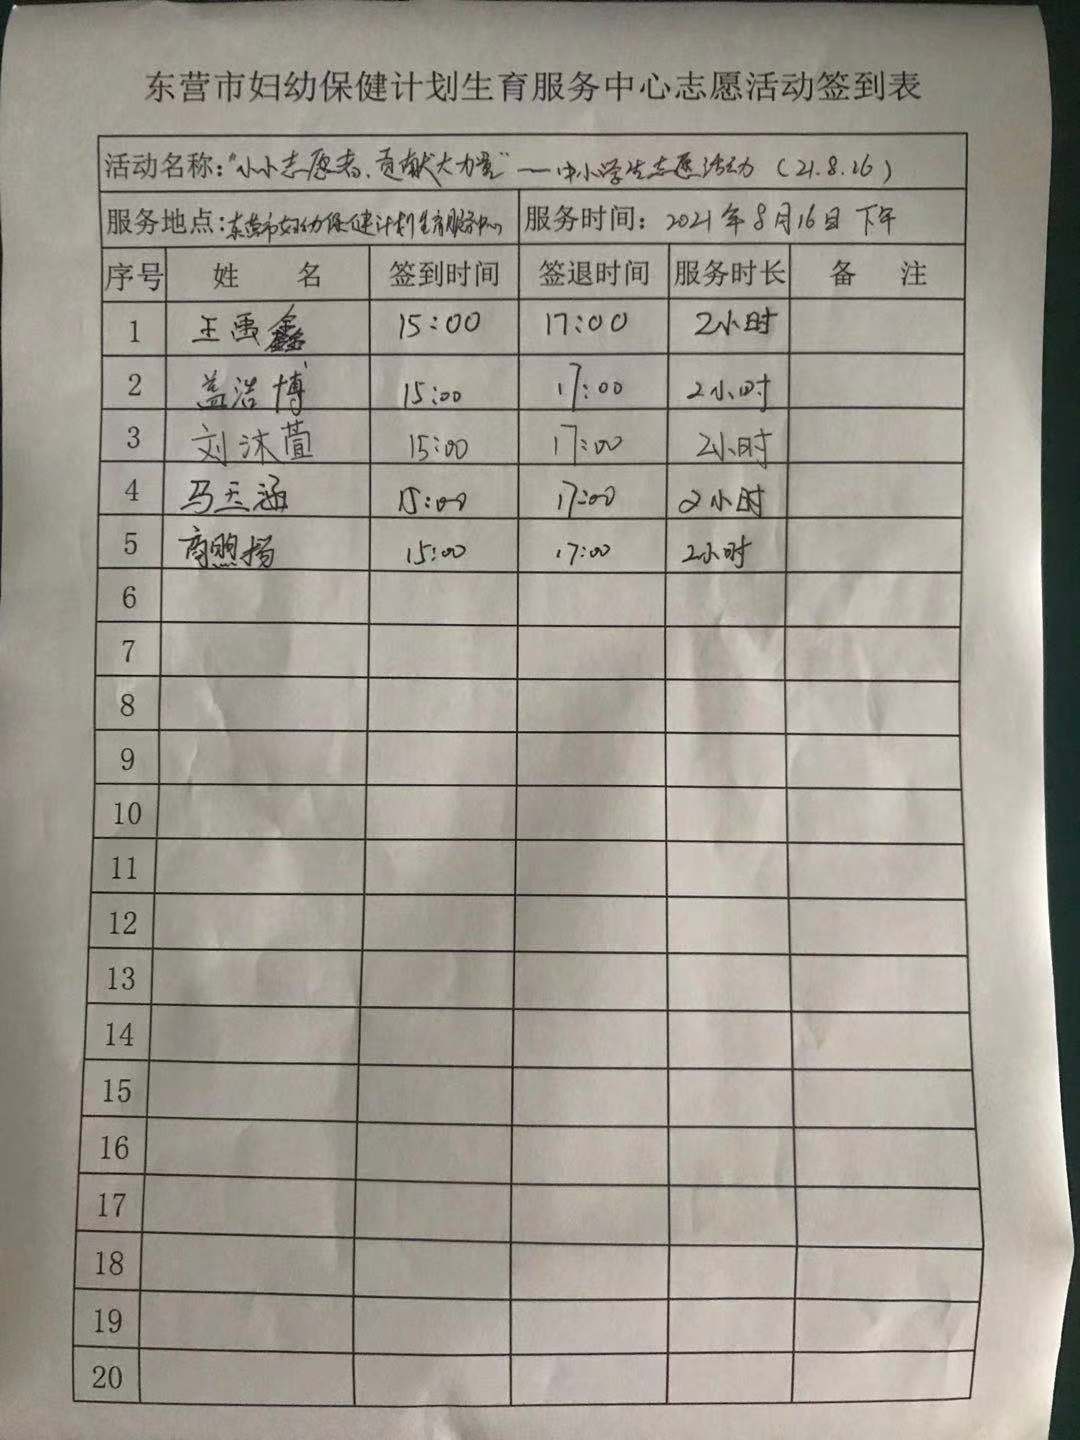 东营市妇幼保健计划生育服务中心志愿活动签到表
活动名称:“小小志愿者、贡献大力量”——中小学生志愿活动(21.8.16)
服务地点:东营市妇幼保健计划生育服务中心 服务时间: 2021年8月16日下午
序号 姓 名 签到时间 签退时间 服务时长 备 注
1 王禹鑫 15:00 17:00 2小时
2 盖浩博 15:00 17:00 2小时
3 刘沐萱 15:00 17:00 2小时
4 马天涵 15:00 17:00 2小时
5 商煦扬 15:00 17:00 2小时
6
7
8
9
10
11
12
13
14
15
16
17
18
19
20